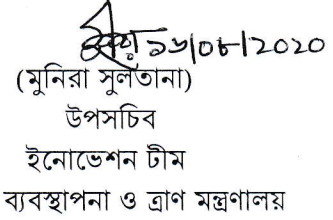 ১৬/০৮/২০২০
(মুনিরা সুলতানা)
উপসচিব
ইনোভেশন টীম
ব্যবস্থাপনা ও ত্রাণ মন্ত্রণালয়